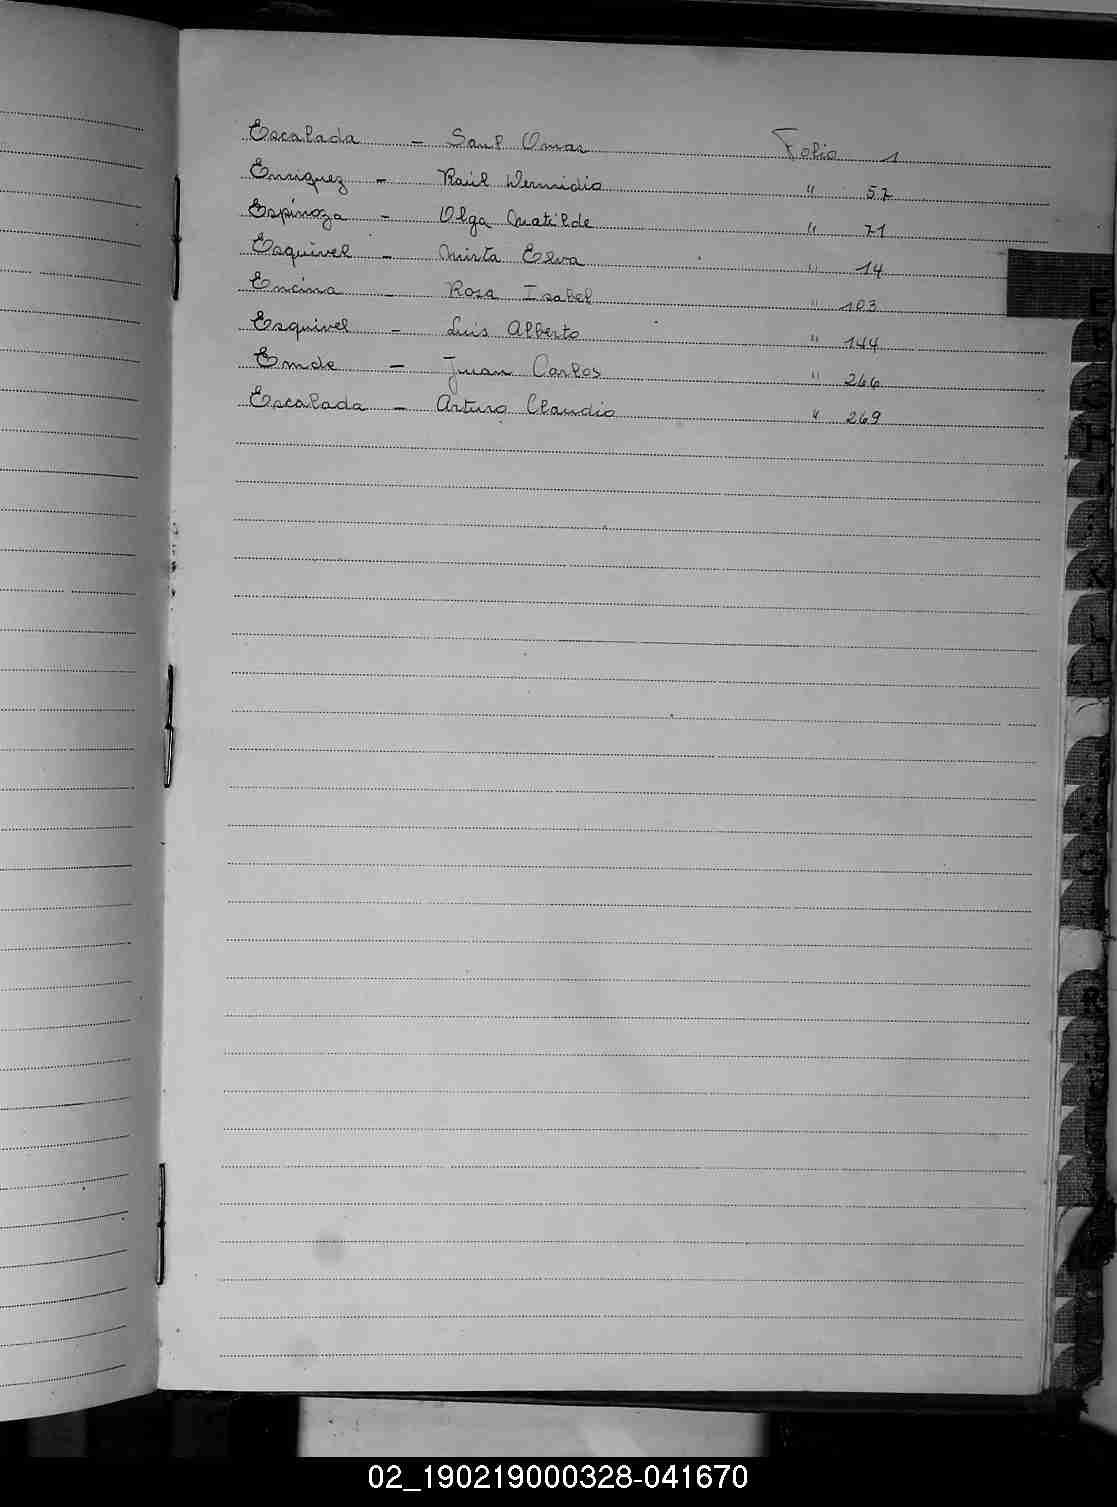 Escalada - Saul Omar Folio 1
Enriquez - Raúl Wermidio " 57
Espinoza - Olga Matilde " 71
Esquivel - Mirta Elva " 14
Encina - Rosa Isabel " 103
Esquivel - Luis Alberto " 144
Emde - Juan Carlos " 266
Escalada - Arturo Claudio " 269
E
K
R
02_190219000328-041670